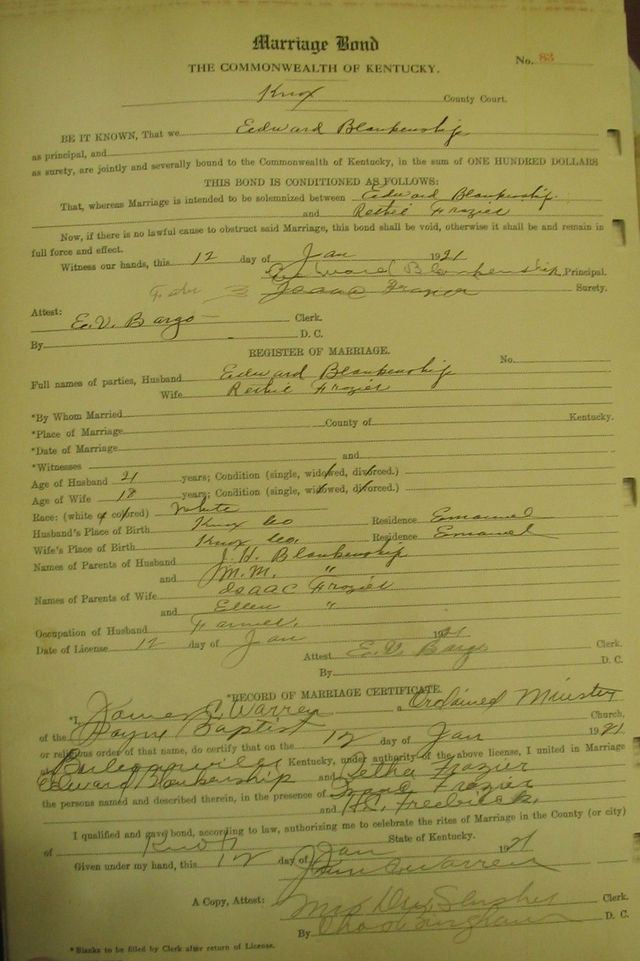 Marriage Bond
No. 83
THE COMMONWEALTH OF KENTUCKY.
Knox County Court.
BE IT KNOWN, That we Edward Blankenship
as principal, and
as surety, are jointly and severally bound to the Commonwealth of Kentucky, in the sum of ONE HUNDRED DOLLARS
THIS BOND IS CONDITIONED AS FOLLOWS:
That, whereas Marriage is intended to be solemnized between Edward Blankenship
and Rethie Frozier
Now, if there is no lawful cause to obstruct said Marriage, this bond shall be void, otherwise it shall be and remain in
full force and effect.
Witness our hands, this 12 day of Jan 1921
Edward Blankenship Principal.
Isaac Frozier Surety.
Attest:
E.V. Bargo Clerk.
By D. C.
REGISTER OF MARRIAGE.
Full names of parties, Husband Edward Blankenship No.
Wife Rethie Frozier
*By Whom Married
*Place of Marriage County of Kentucky.
*Date of Marriage
*Witnesses and
Age of Husband 21 years; Condition (single, widowed, divorced.)
Age of Wife 18 years; Condition (single, widowed, divorced.)
Race: (white or colored) White
Husband's Place of Birth Knox Co Residence Emanuel
Wife's Place of Birth Knox Co. Residence Emanuel
Names of Parents of Husband J. H. Blankenship
and M. M. "
Names of Parents of Wife Isaac Frozier
and Ellen "
Occupation of Husband Farmer.
Date of License 12 day of Jan 1921
Attest E.V. Bargo Clerk.
By D. C.
*RECORD OF MARRIAGE CERTIFICATE.
*I, James C Warren a Ordained Minister
of the Payne Baptist Church,
or religious order of that name, do certify that on the 12 day of Jan 1921
at Kentucky, under authority of the above license, I united in Marriage
Edward Blankership and Retha Frozier
the persons named and described therein, in the presence of Frozier
and
I qualified and gave bond, according to law, authorizing me to celebrate the rites of Marriage in the County (or city)
of Knox State of Kentucky.
Given under my hand, this 12 day of Jan 1921
Warren
A Copy, Attest: Clerk.
By D. C.
*Blanks to be filled by Clerk after return of License.